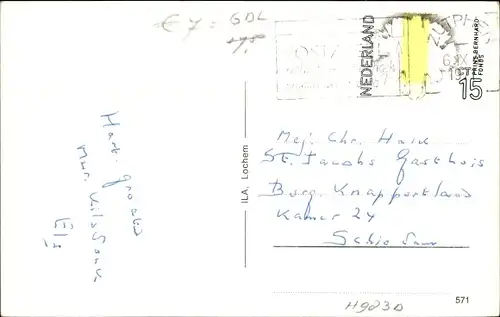 € 7 = GDL
ZUTPHEN
POSTC
NEDERLAND
PRINS BERNHARD
FONDS
15
6.IX
197
Hart. groeten
Mvr.
Els
ILA, Lochem
Mej. Chr. Hack
St. Jacobs Gasthuis
Burg. Knappertlaan
Kamer 24
Schiedam
H983D
571